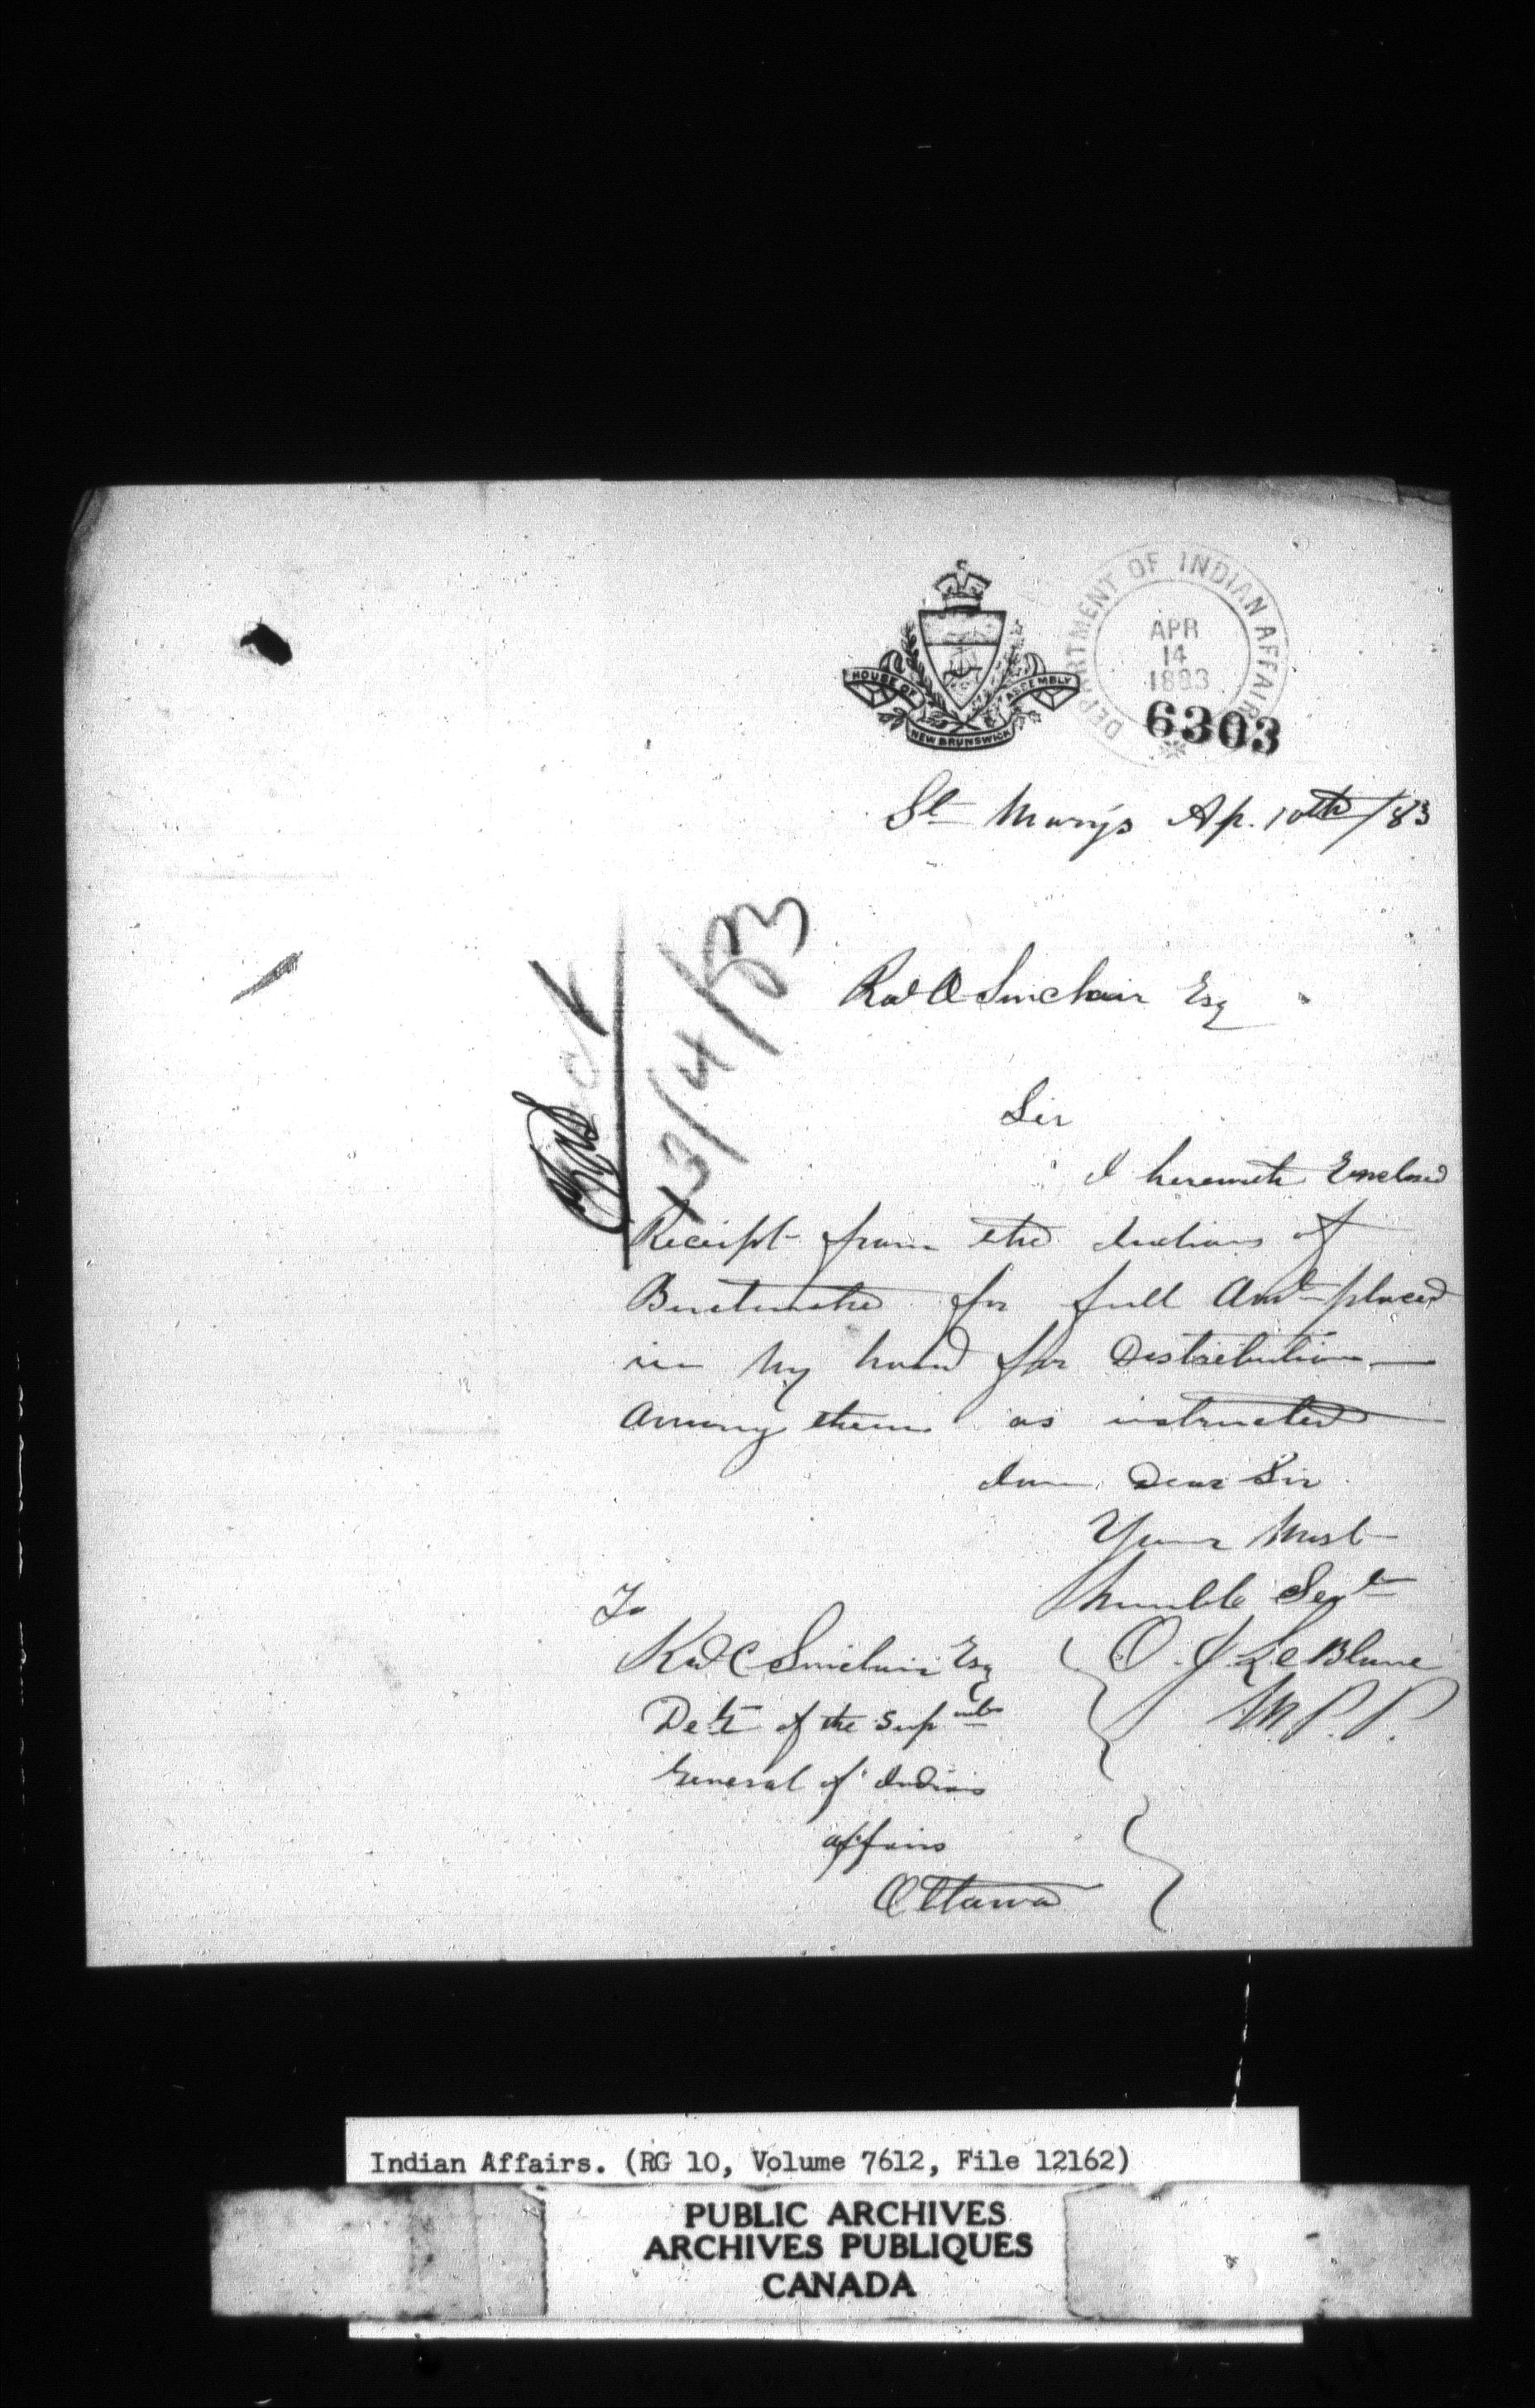 HOUSE OF ASSEMBLY
NEW BRUNSWICK
DEPARTMENT OF INDIAN AFFAIRS
APR
14
1883
6303
St Mary's Ap. 10th/83
Sinclair Esq
13/4/83
Sir
I herewith Enclosed
Receipt from the Indians of
Buctouche for full Amt placed
in My hand for Distribution
Among them as instructed
I am Dear Sir
Your Most
humble Sevt
To
O. J. LeBlanc
M.P.P.
Sinclair Esq
of the Sup
General of Indian
affairs
Ottawa
Indian Affairs. (RG 10, Volume 7612, File 12162)
PUBLIC ARCHIVES
ARCHIVES PUBLIQUES
CANADA